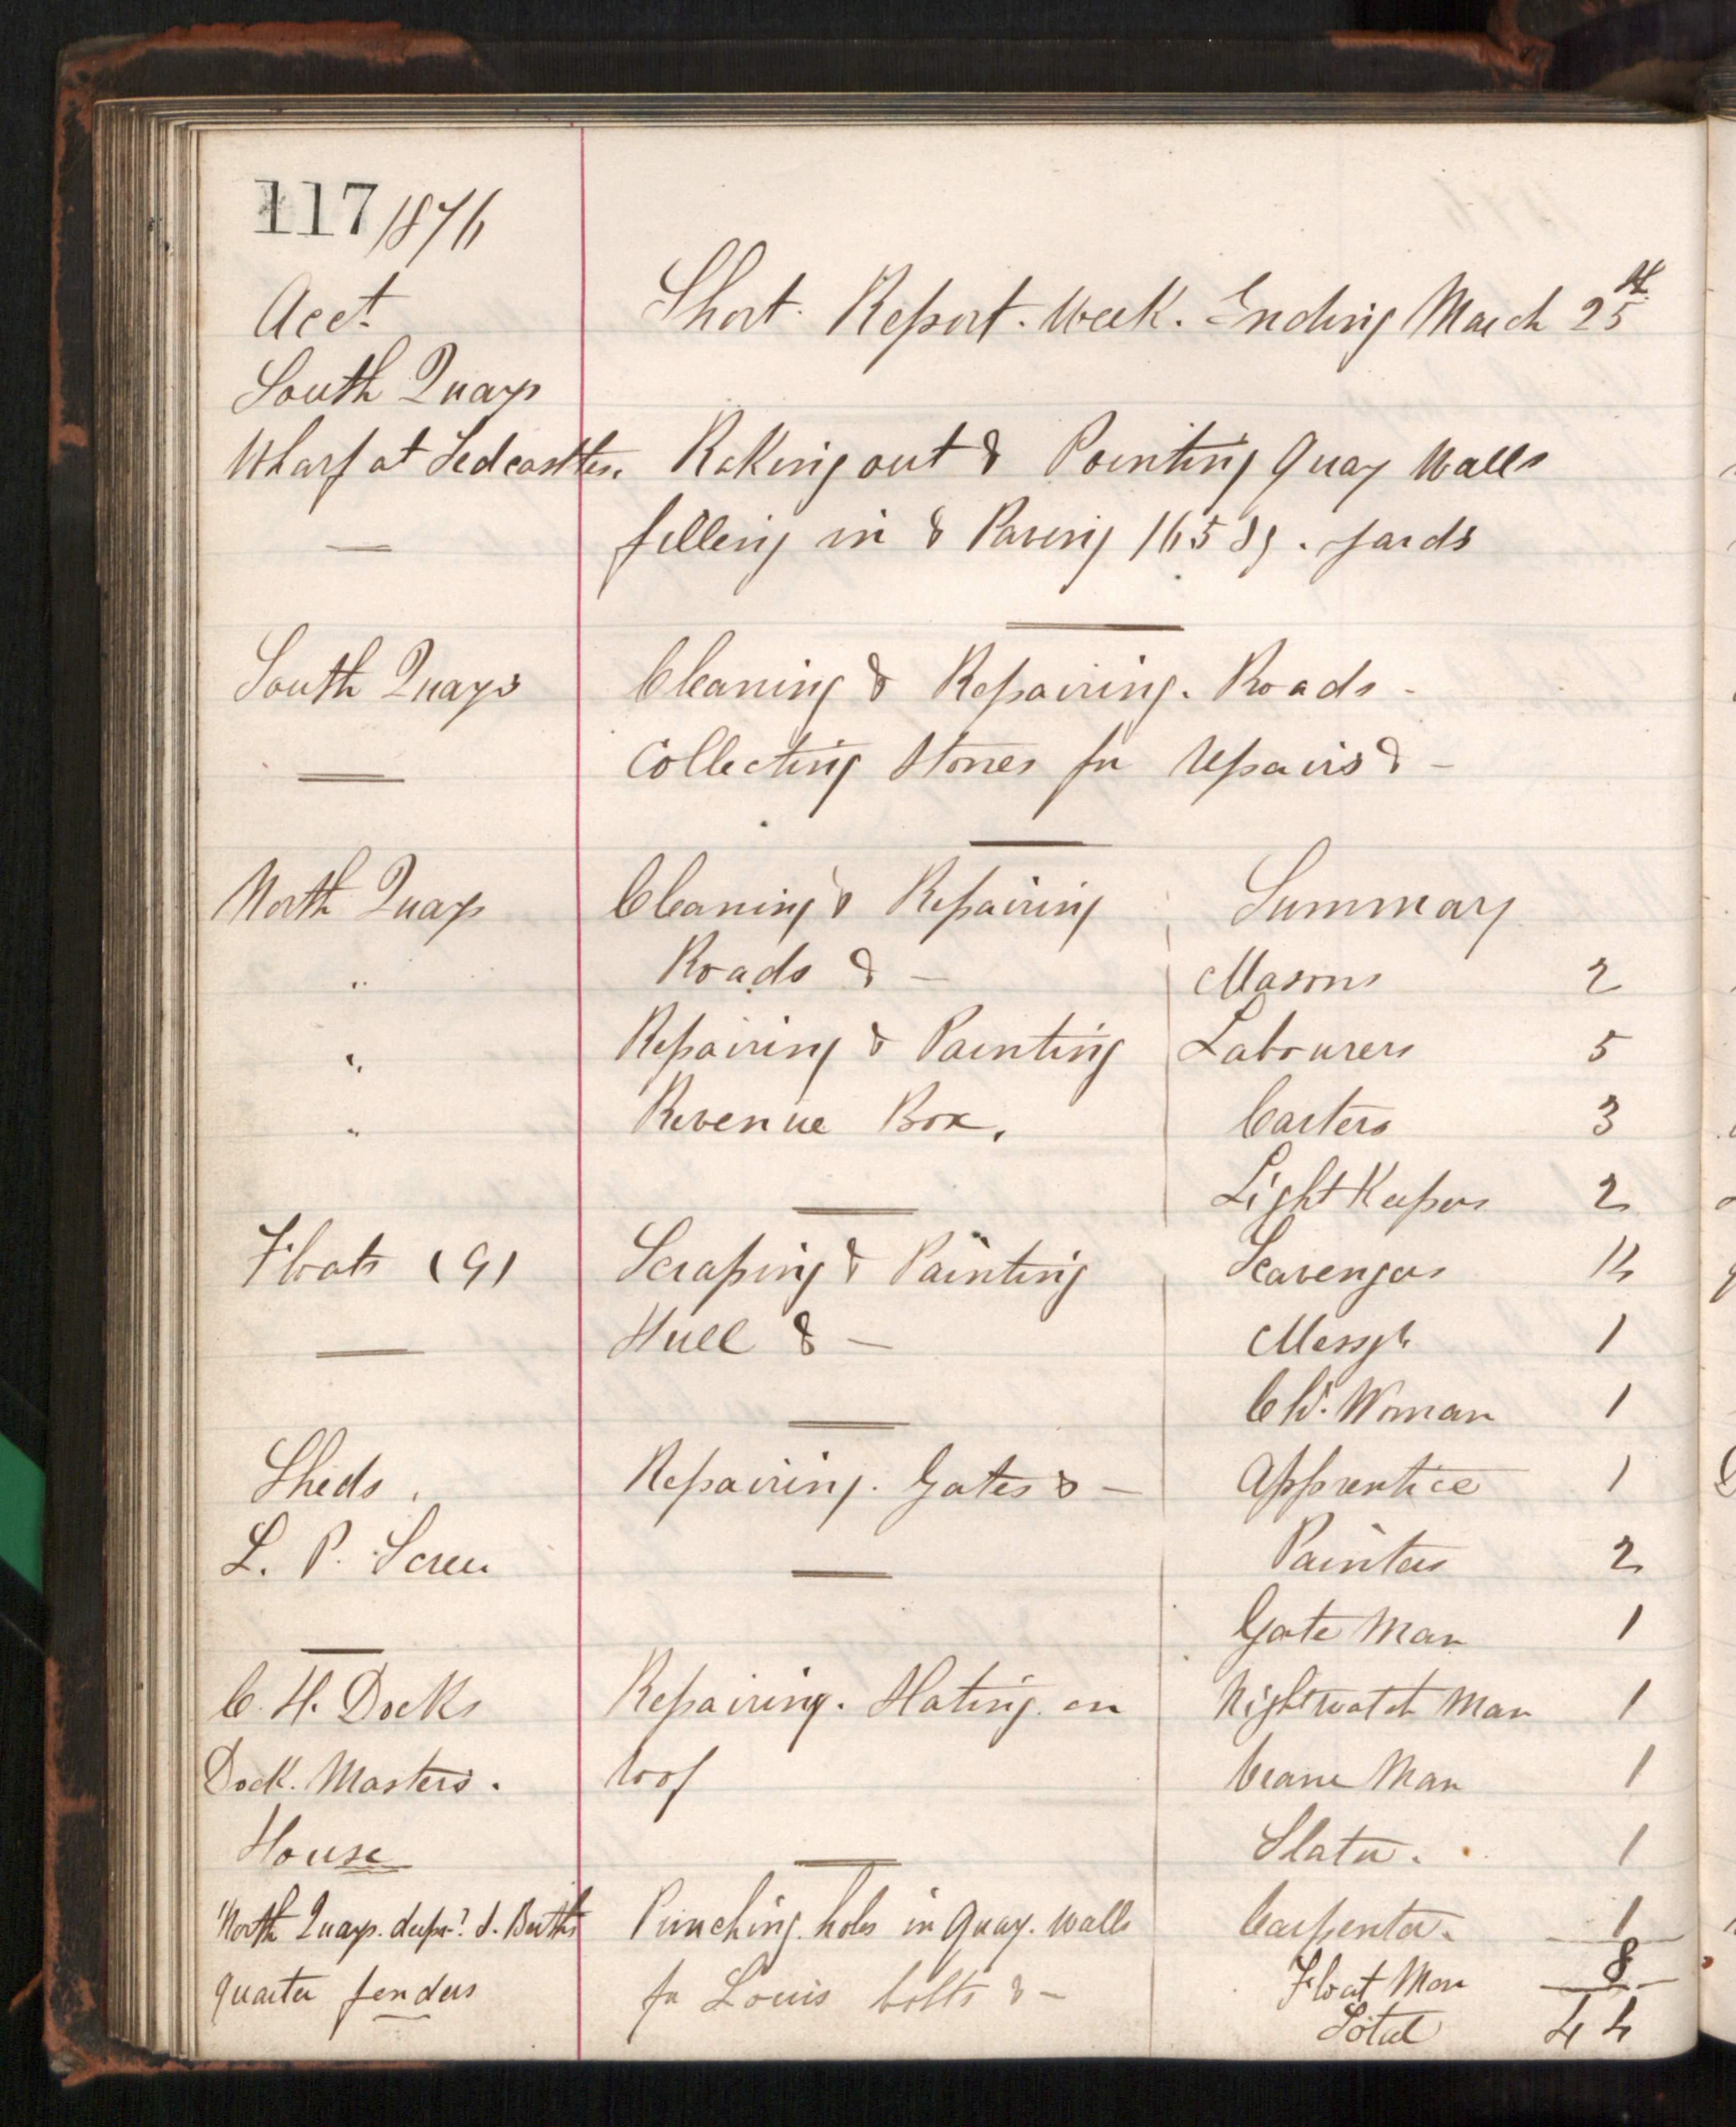 117 / 1876
Acct. Short Report. Week. Ending March 25th
South Quays
Wharf at Tedcastles. Raking out & Pointing Quay Walls
— filling in & Paving 165 Sq. yards
South Quays Cleaning & Repairing. Roads -
— Collecting Stones for repairs & -
North Quays Cleaning & Repairing Summary
" Roads & - Masons 2
" Repairing & Painting Labourers 5
" Revenue Box. Carters 3
Light Keepers 2
Floats (9) Scraping & Painting Scavengers 14
— Hull & - Messgr 1
Ch. Woman 1
Sheds. Repairing. Gates & - Apprentice 1
L. P. Screw Painters 2
Gate Man 1
C. H. Docks Repairing. Slating. on Nightwatch Man 1
Dock. Masters. roof Crane Man 1
House Slater. 1
North Quays. S. Berths Punching. holes in Quay. walls Carpenter. 1
quarter fenders for Louis bolts & - Float Men 8
Total 44